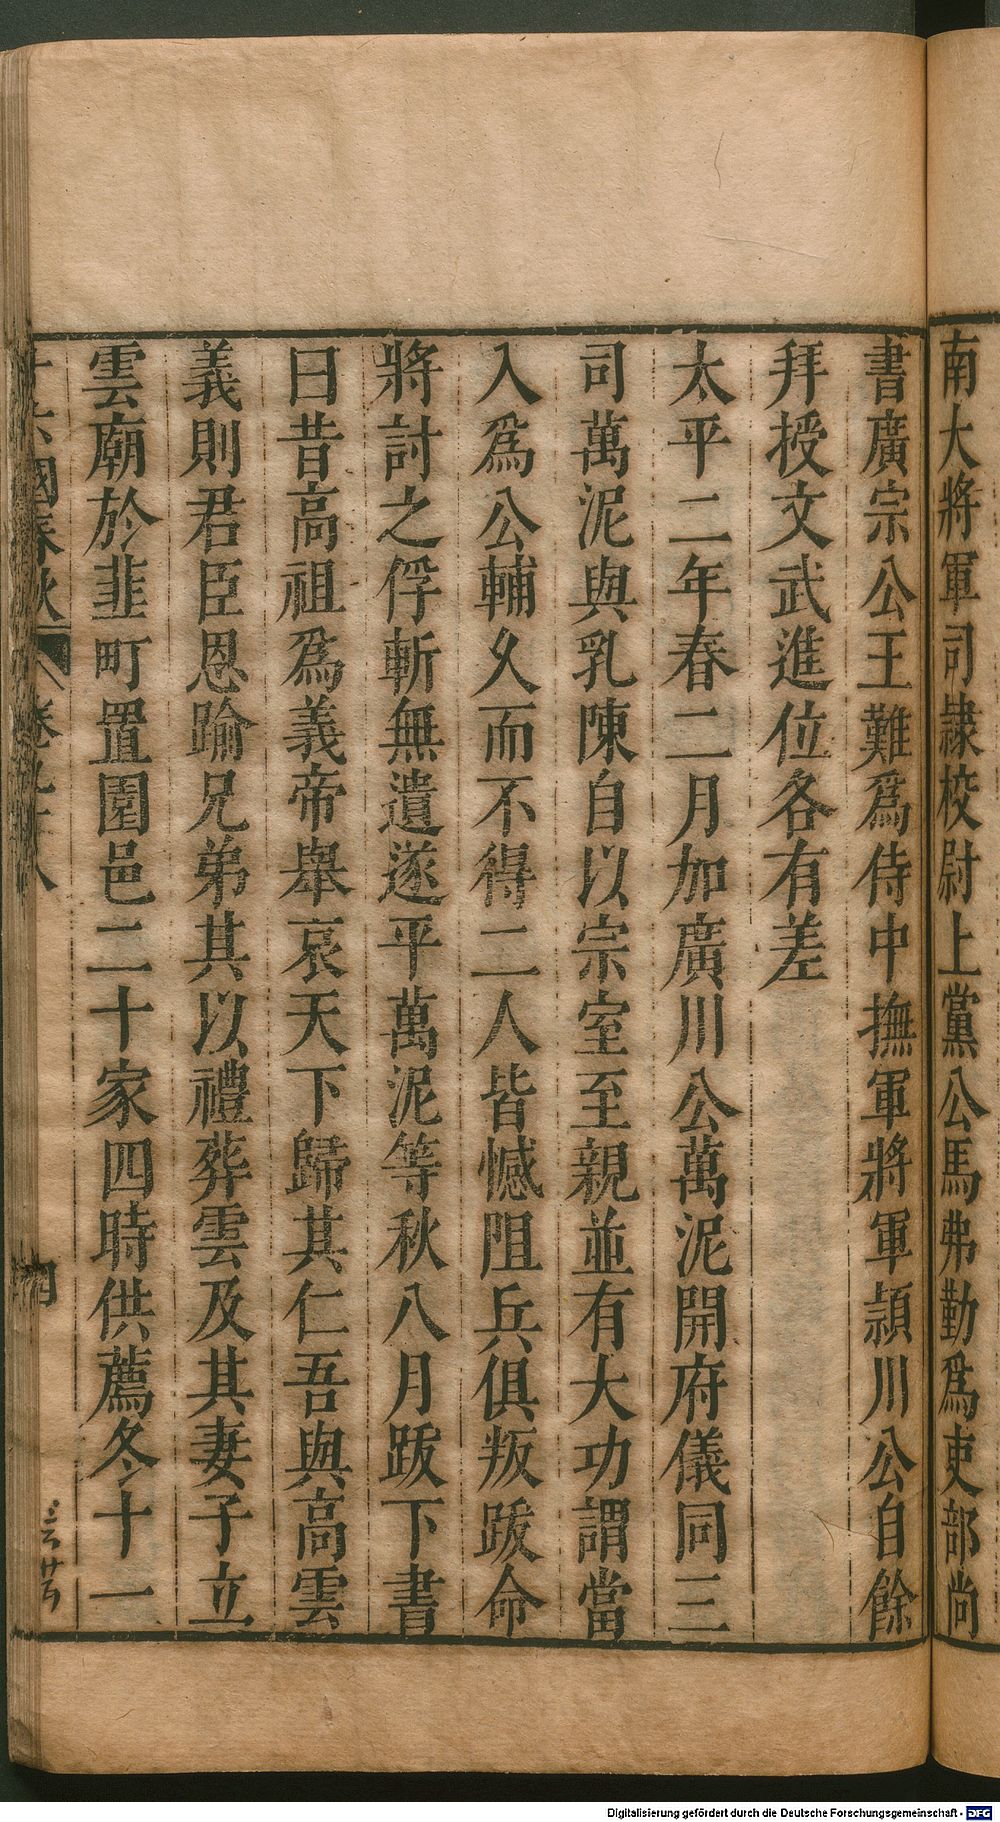 南大將軍司隷校尉上黨公馬弗勤爲吏部尚
書廣宗公王難爲侍中撫軍將軍潁川公自餘
拜授文武進位各有差
太平二年春二月加廣川公萬泥開府儀同三
司萬泥與乳陳自以宗室至親並有大功謂當
入爲公輔久而不得二人皆憾阻兵俱叛跋命
將討之俘斬無遺遂平萬泥等秋八月跋下書
曰昔高祖爲義帝舉哀天下歸其仁吾與高雲
義則君臣恩踰兄弟其以禮葬雲及其妻子立
雲廟於韮町置園邑二十家四時供薦冬十一
十六國春秋
Digitalisierung gefördert durch die Deutsche Forschungsgemeinschaft - DFG